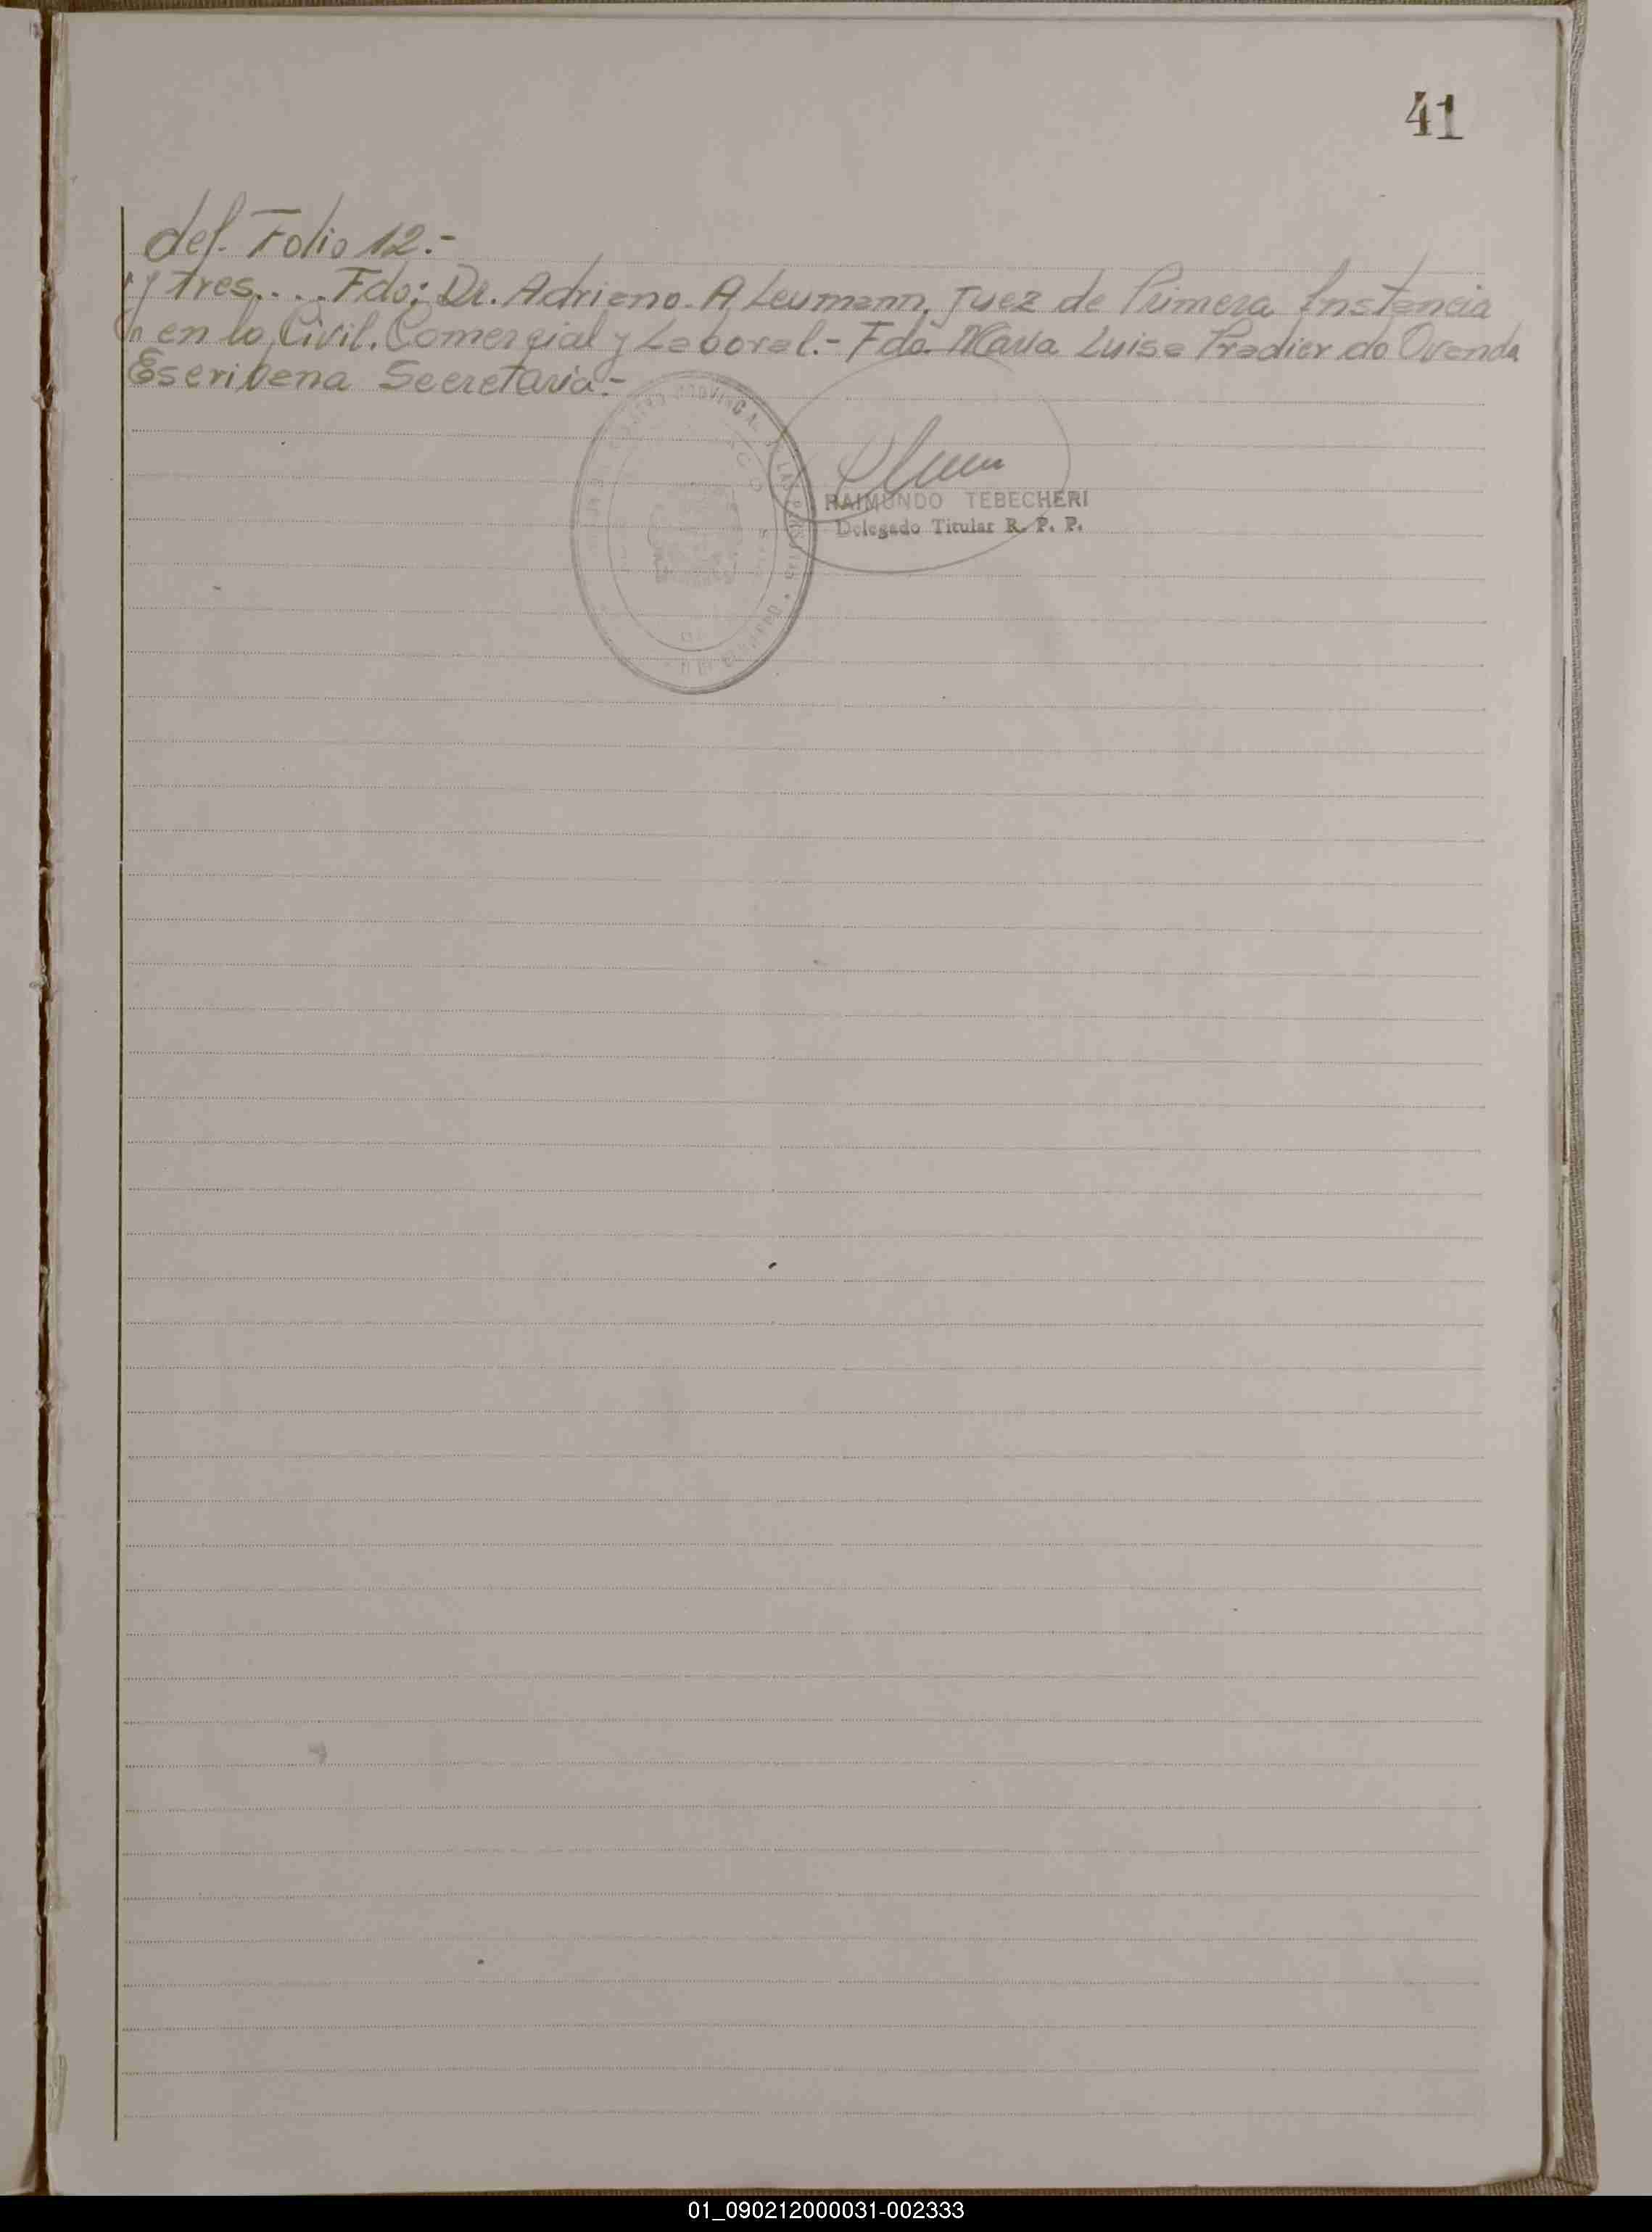 41
del. Folio 12.-
y Tres.... Fdo: Dr. Adriano. A Leumann, Juez de Primera Instancia
en lo Civil. Comercial y Laboral.- Fdo. Maria Luisa Pradier de Ovando
Escribana Secretaria.-
RAIMUNDO TEBECHERI
Delegado Titular R. P. P.
01_090212000031-002333